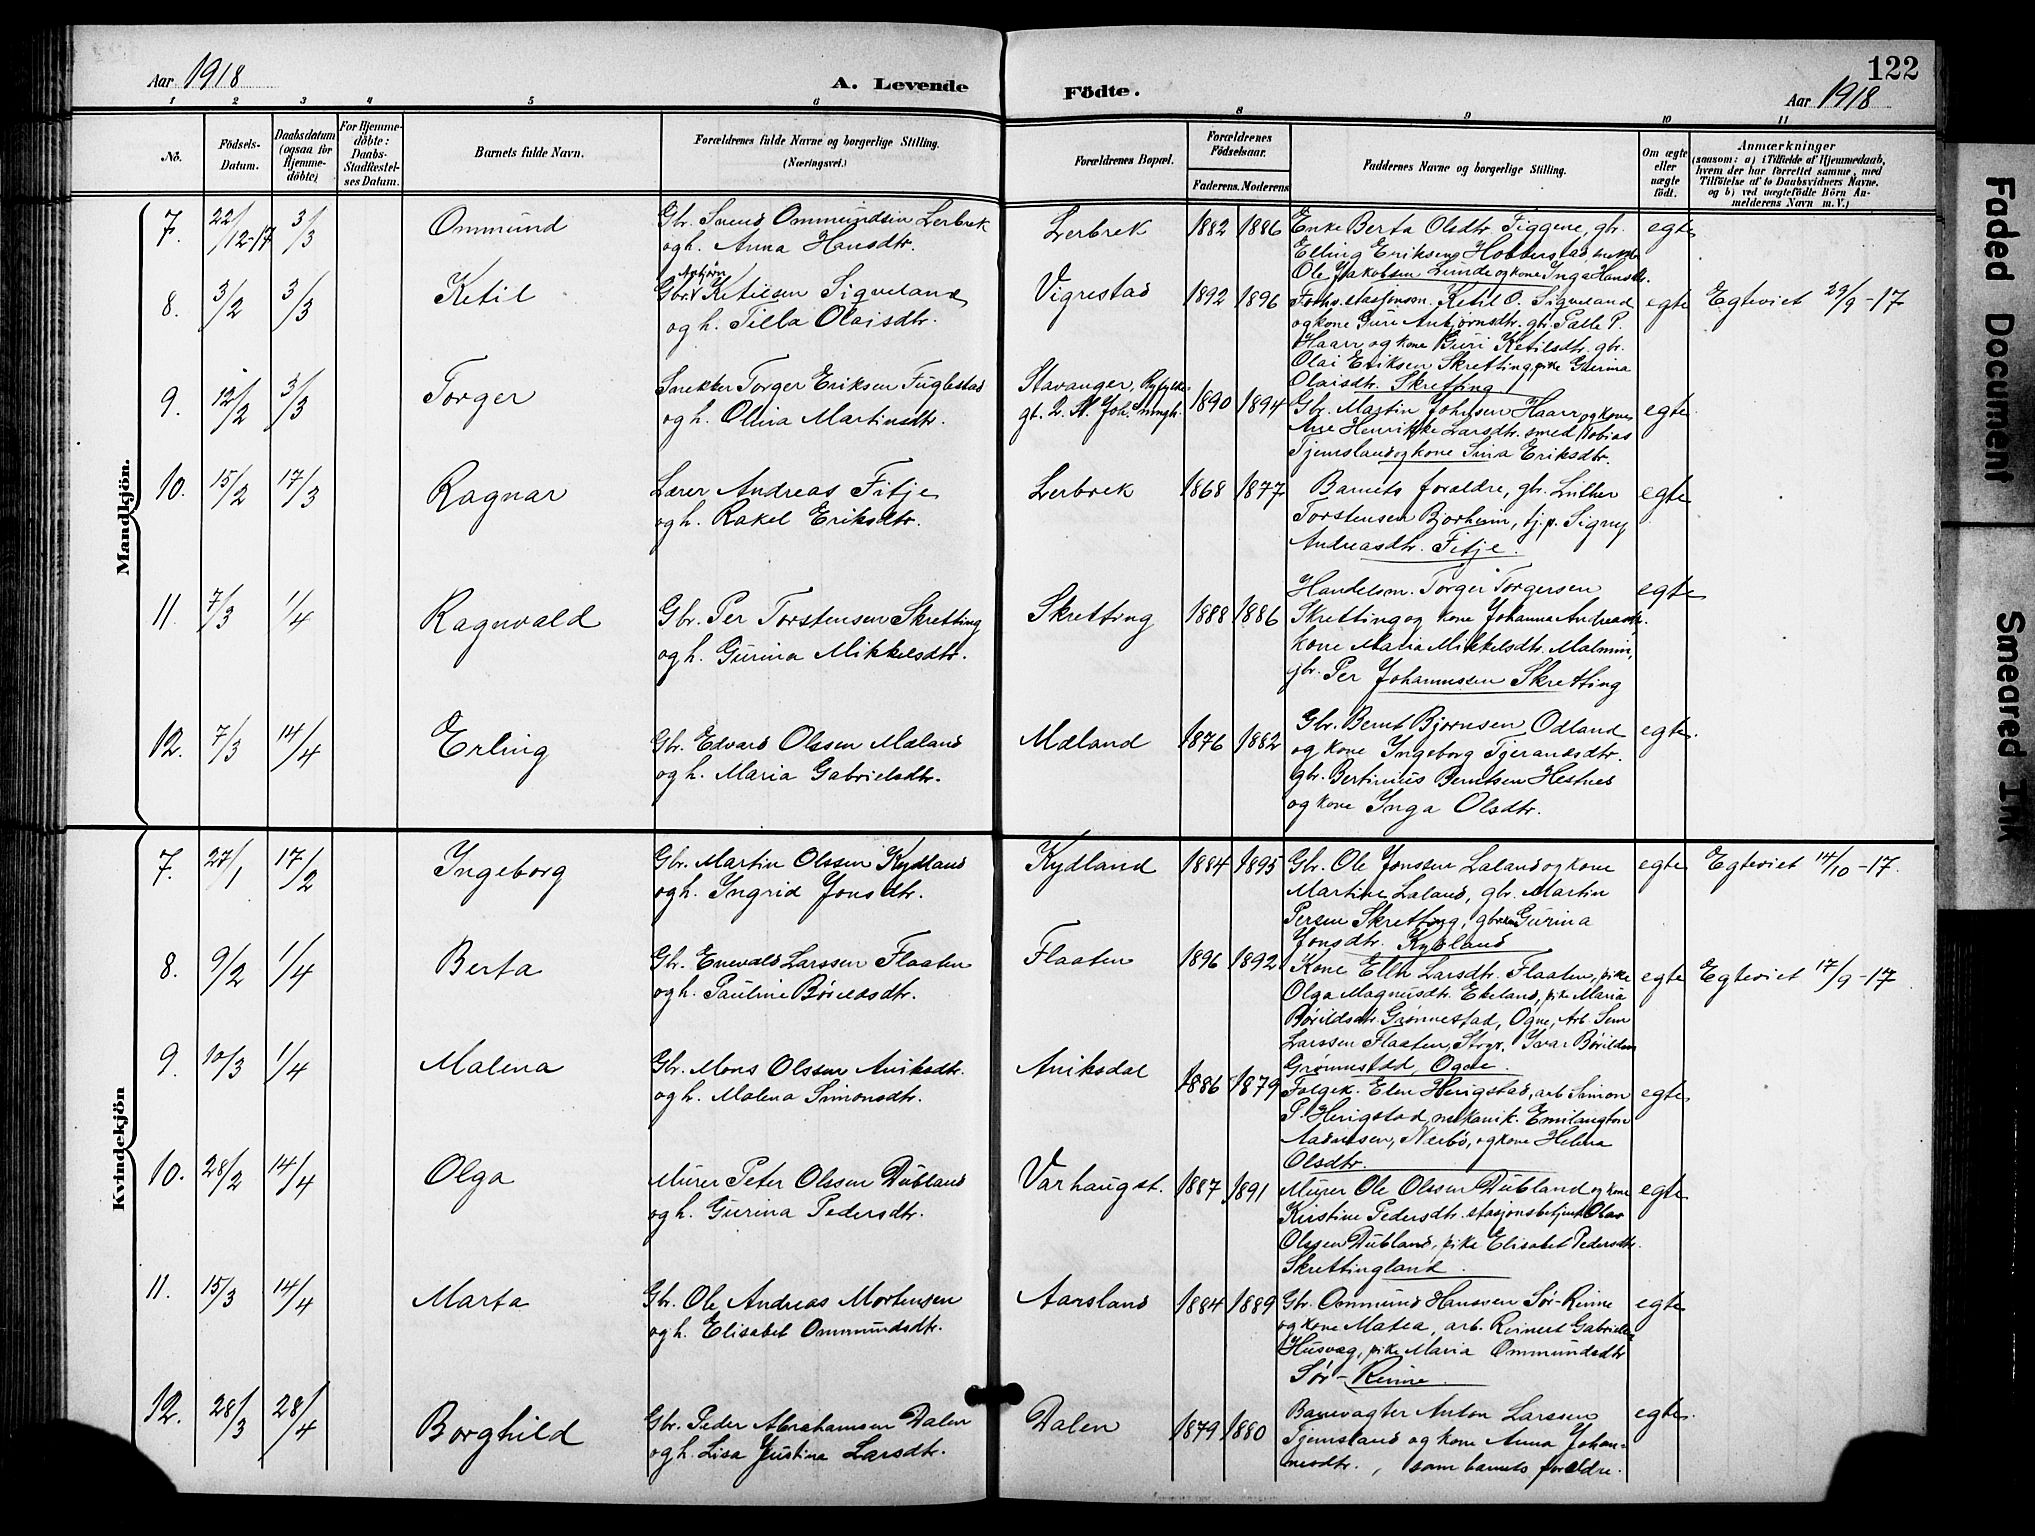 122
Aar 1918
A. Levende
Födte.
Aar 1918
1 2 3 4 5 6 8 9 10 11
No.
Födsels-Datum.
Daabsdatum (ogsaa for Hjemme-döbte)
For Hjemme-döbte: Daabs-Stadfæstel-ses Datum.
Barnets fulde Navn.
Forældrenes fulde Navne og borgerlige Stilling. (Næringsvei.)
Forældrenes Bopæl.
Forældrenes Födselsaar.
Faderens. Moderens
Faddernes Navne og borgerlige Stilling.
Om ægte eller uægte födt.
Anmærkninger
(saasom: a) i Tilfælde af Hjemmedaab,
hvem der har forrettet samme, med
Tilföielse af to Daabsvidners Navne.
og b) ved uægtefödte Börn An-
melderens Navn m. V.)
Mandkjön.
7. 22/12-17 3/3 Ommund
Gbr. Svend Ommundsen Lerbrek
og h. Anna Hansdtr.
Lerbrek 1882 1886
Enke Berta Olsdtr. Tiggene, gbr.
Elling Eriksen Hobberstad,
Ole Jakobsen Lunde og kone Inga Hansdtr.
egte
8. 3/2 3/3 Ketil
Asbjörn
Gbr. Ketilsen Sigveland
og h. Tilla Olaisdtr.
Vigrestad 1892 1896
Ketil O. Sigveland
og kone Guri Asbjørnsdtr. gbr. Palle P.
Haarr og kone Guri Ketilsdtr. gbr.
Olai Eriksen Skretting, pike Gurina
Olaisdtr. Skretting
egte Egteviet 29/9-17
9. 12/2 3/3 Torger
Snekker Torger Eriksen Fuglestad
og h. Olina Martinsdtr.
Stavanger, Ryfylke-
gt. 2. St. Joh. mngh. 1890 1894
Gbr. Martin Johnsen Haarr og kone
Ane Henrikke Larsdtr. smed Tobias
Tjemsland og kone Sina Eriksdtr.
egte
10. 15/2 17/3 Ragnar
Lærer Andreas Fitje
og h. Rakel Eriksdtr.
Lerbrek 1868 1877
Barnets forældre, gbr. Luther
Torstensen Bjorheim, tj.p. Signy
Andreasdtr. Fitje.
egte
11. 7/3 1/4 Ragnvald
Gbr. Per Torstensen Skretting
og h. Gurina Mikkelsdtr.
Skretting 1888 1886
Handelsm. Torger Torgersen
Skretting og kone Johanna Andreasdtr.
kone Maria Mikkelsdtr. Malmin,
gbr. Per Johannessen Skretting
egte
12. 7/3 14/4 Erling
Gbr. Edvard Olssen Mæland
og h. Maria Gabrielsdtr.
Mæland 1876 1882
Gbr. Bernt Bjørnsen Odland
og kone Ingeborg Tgerandsdtr.
gbr. Bertinius Berntsen Hestnes
og kone Inga Olsdtr.
egte.
Kvindekjön
7. 27/1 17/2 Ingeborg
Gbr. Martin Olssen Kydland
og h. Ingrid Jonsdtr.
Kydland 1884 1895
Gbr. Ole Jonssen Laland og kone
Martine Laland, gbr. Martin
Persen Skretting, gbrkone Gurina
Jonsdtr. Kydland
egte Egteviet 14/10-17.
8. 9/2 1/4 Berta
Gbr. Enevald Larssen Flaaten
og h. Pauline Børildsdtr.
Flaaten 1896 1892
Kone Elen Larsdtr. Flaaten, pike
Olga Magnusdtr. Ekeland, pike Maria
Børildsdtr. Grønnestad, Ogne, Arb. Sem
Larssen Flaaten, Strgr. Ivar Børildsen
Grønnestad, Ogne.
egte Egteviet 17/9-17
9. 10/3 1/4 Malena
Gbr. Mons Olssen Aniksdtr.
og h. Malena Simonsdtr.
Aniksdal 1886 1879
Folgek. Elen Herigstad, arb. Simon
P. Herigstad, mekanik. Emil Angton
Aadnesen, Nærbö, og kone Helena
Olsdtr.
egte
10. 28/2 14/4 Olga
Murer Peter Olssen Dubland
og h. Gurina Pedersdtr.
Varhaugst. 1887 1891
Murer Ole Olssen Dubland og kone
Kristine Pedersdtr. stasjonsbetjent Olav
Olssen Dubland, pike Elisabet Pedersdtr.
Skrettingland.
egte
11. 15/3 14/4 Marta
Gbr. Ole Andreas Mortensen
og h. Elisabet Ommundsdtr.
Aarsland 1884 1889
Gbr. Ommund Hanssen Sør-Reime
og kone Matea, arb. Reinert Gabrielsen
Husvæg, pike Maria Ommundsdtr
Sør-Reime.
egte
12. 28/3 28/4 Borghild
Gbr. Peder Abrahamsen Dalen
og h. Lisa Justina Larsdtr.
Dalen 1879 1880
Banevagter Anton Larssen
Tjemsland og kone Anna Johan-
nesdtr., som barnets forældre.
egte.
Faded Document
Smeared Ink